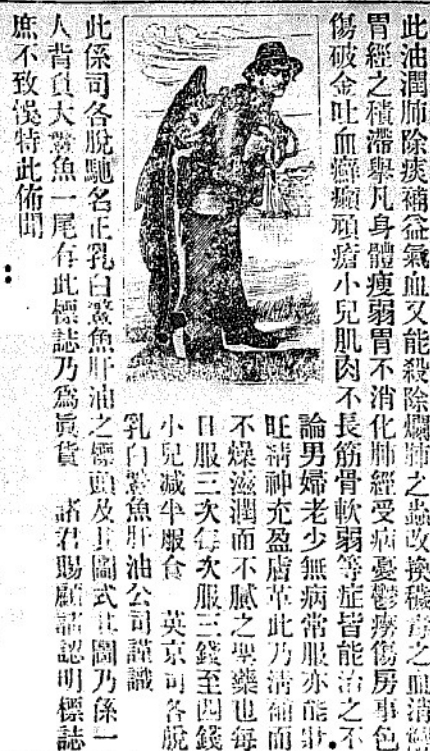 此油潤肺除痰補益氣血又能殺除爛肺之蟲改換穢毒之血清
胃經之積滯舉凡身體瘦弱胃不消化肺經受病憂鬱癆傷房事色
傷破金吐血癬癩頑瘡小兒肌肉不長筋骨軟弱等症皆能治之不
論男婦老少無病常服亦能
旺精神充盈膚革此乃清補而
不燥滋潤而不膩之聖藥也每
日服三次每次服三錢至四錢
小兒減半服食　英京司各脫
乳白鰵魚肝油公司謹識
此係司各脫馳名正乳白鰵魚肝油之標頭及其圖式其圖乃係一
人背負大鰵魚一尾有此標誌乃為眞貨　諸君賜顧請認明標誌
庶不致悞特此佈聞